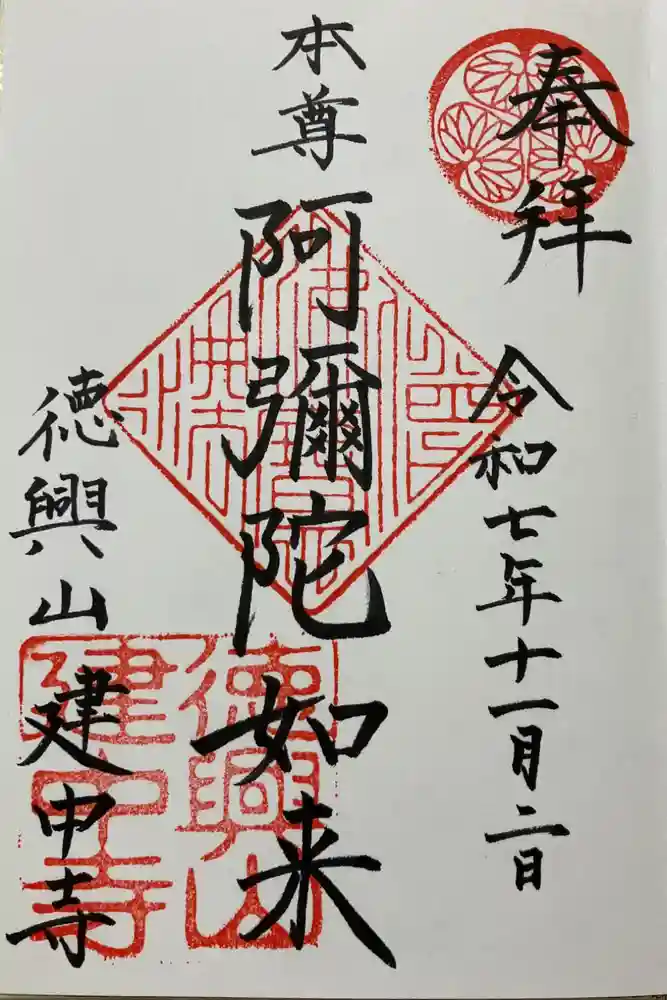 奉拝
令和七年十一月二日
本尊
阿彌陀如来
徳興山建中寺
徳興山
建中寺